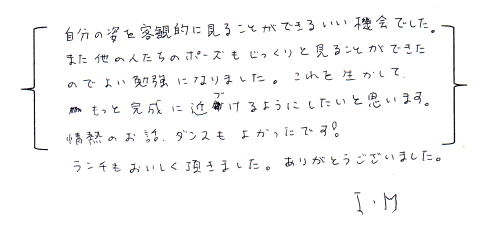 自分の姿を客観的に見ることができるいい機会でした。
また他の人たちのポーズもじっくりと見ることができた
のでよい勉強になりました。これを生かして、
もっと完成に近づけるようにしたいと思います。
情熱のお話、ダンスもよかったです!
ランチもおいしく頂きました。ありがとうございました。
I・M